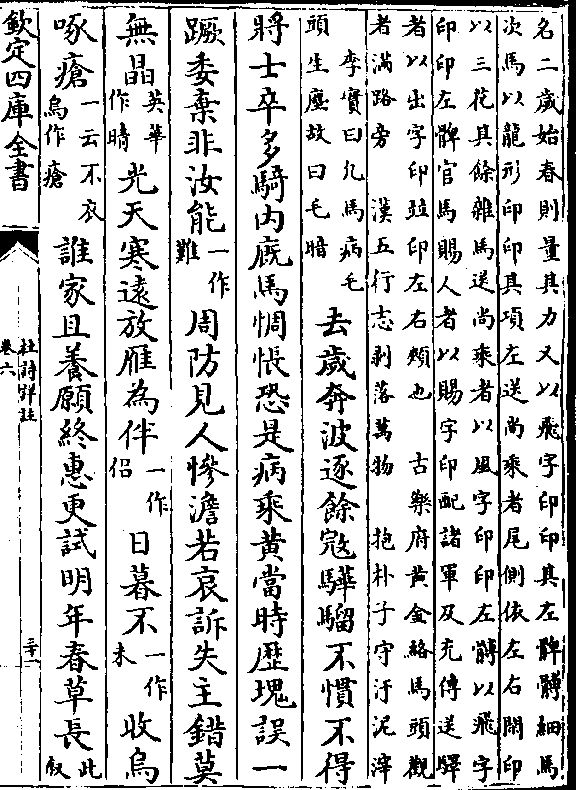 名二歲始春則量其力又以飛字印印其左髀髆細馬
次馬以龍形印印其項左送尚乘者尾側依左右閑印
以三花其餘雜馬送尚乘者以風字印印左髆以飛字
印印左髀官馬賜人者以賜字印配諸軍及充傳送驛
者以出字印竝印左右頰也　古樂府黄金絡馬頭觀
者滿路旁　漢五行志剥落萬物　抱朴子守汙泥滓
李實曰凡馬病毛
頭生塵故曰毛暗
去歲奔波逐餘宼驊騮不慣不得
將士卒多騎内廐馬惆悵恐是病乘黄當時歴塊誤一
蹶委棄非汝能一作難周防見人慘澹若哀訴失主錯莫
無晶英華作晴光天寒遠放雁為伴一作侣日暮不一作未收烏
啄瘡一云不衣烏作瘡誰家且養願終惠更試明年春草長此叙
欽定四庫全書
杜詩詳註
卷六
三十一